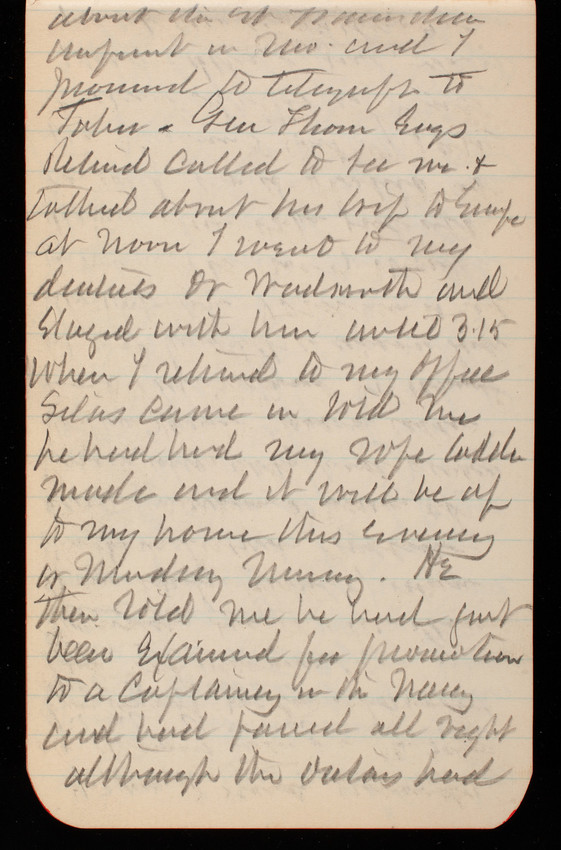 about the St
in Mo. and I
promised to telegraph to
John. Gen Thom Engs
Retired called to see me &
talked about his trip to Europe
at noon I went to my
dentists Dr Wadsworth and
Stayed with him until 3.15
When I returned to my Office
Silas came in told me
he had had my rope ladder
made and it will be up
to my house this evening
or Monday Morning. He
then told me he had just
been Examined for promotion
to a Captaincy in the Navy
and had passed all right
although the doctors had